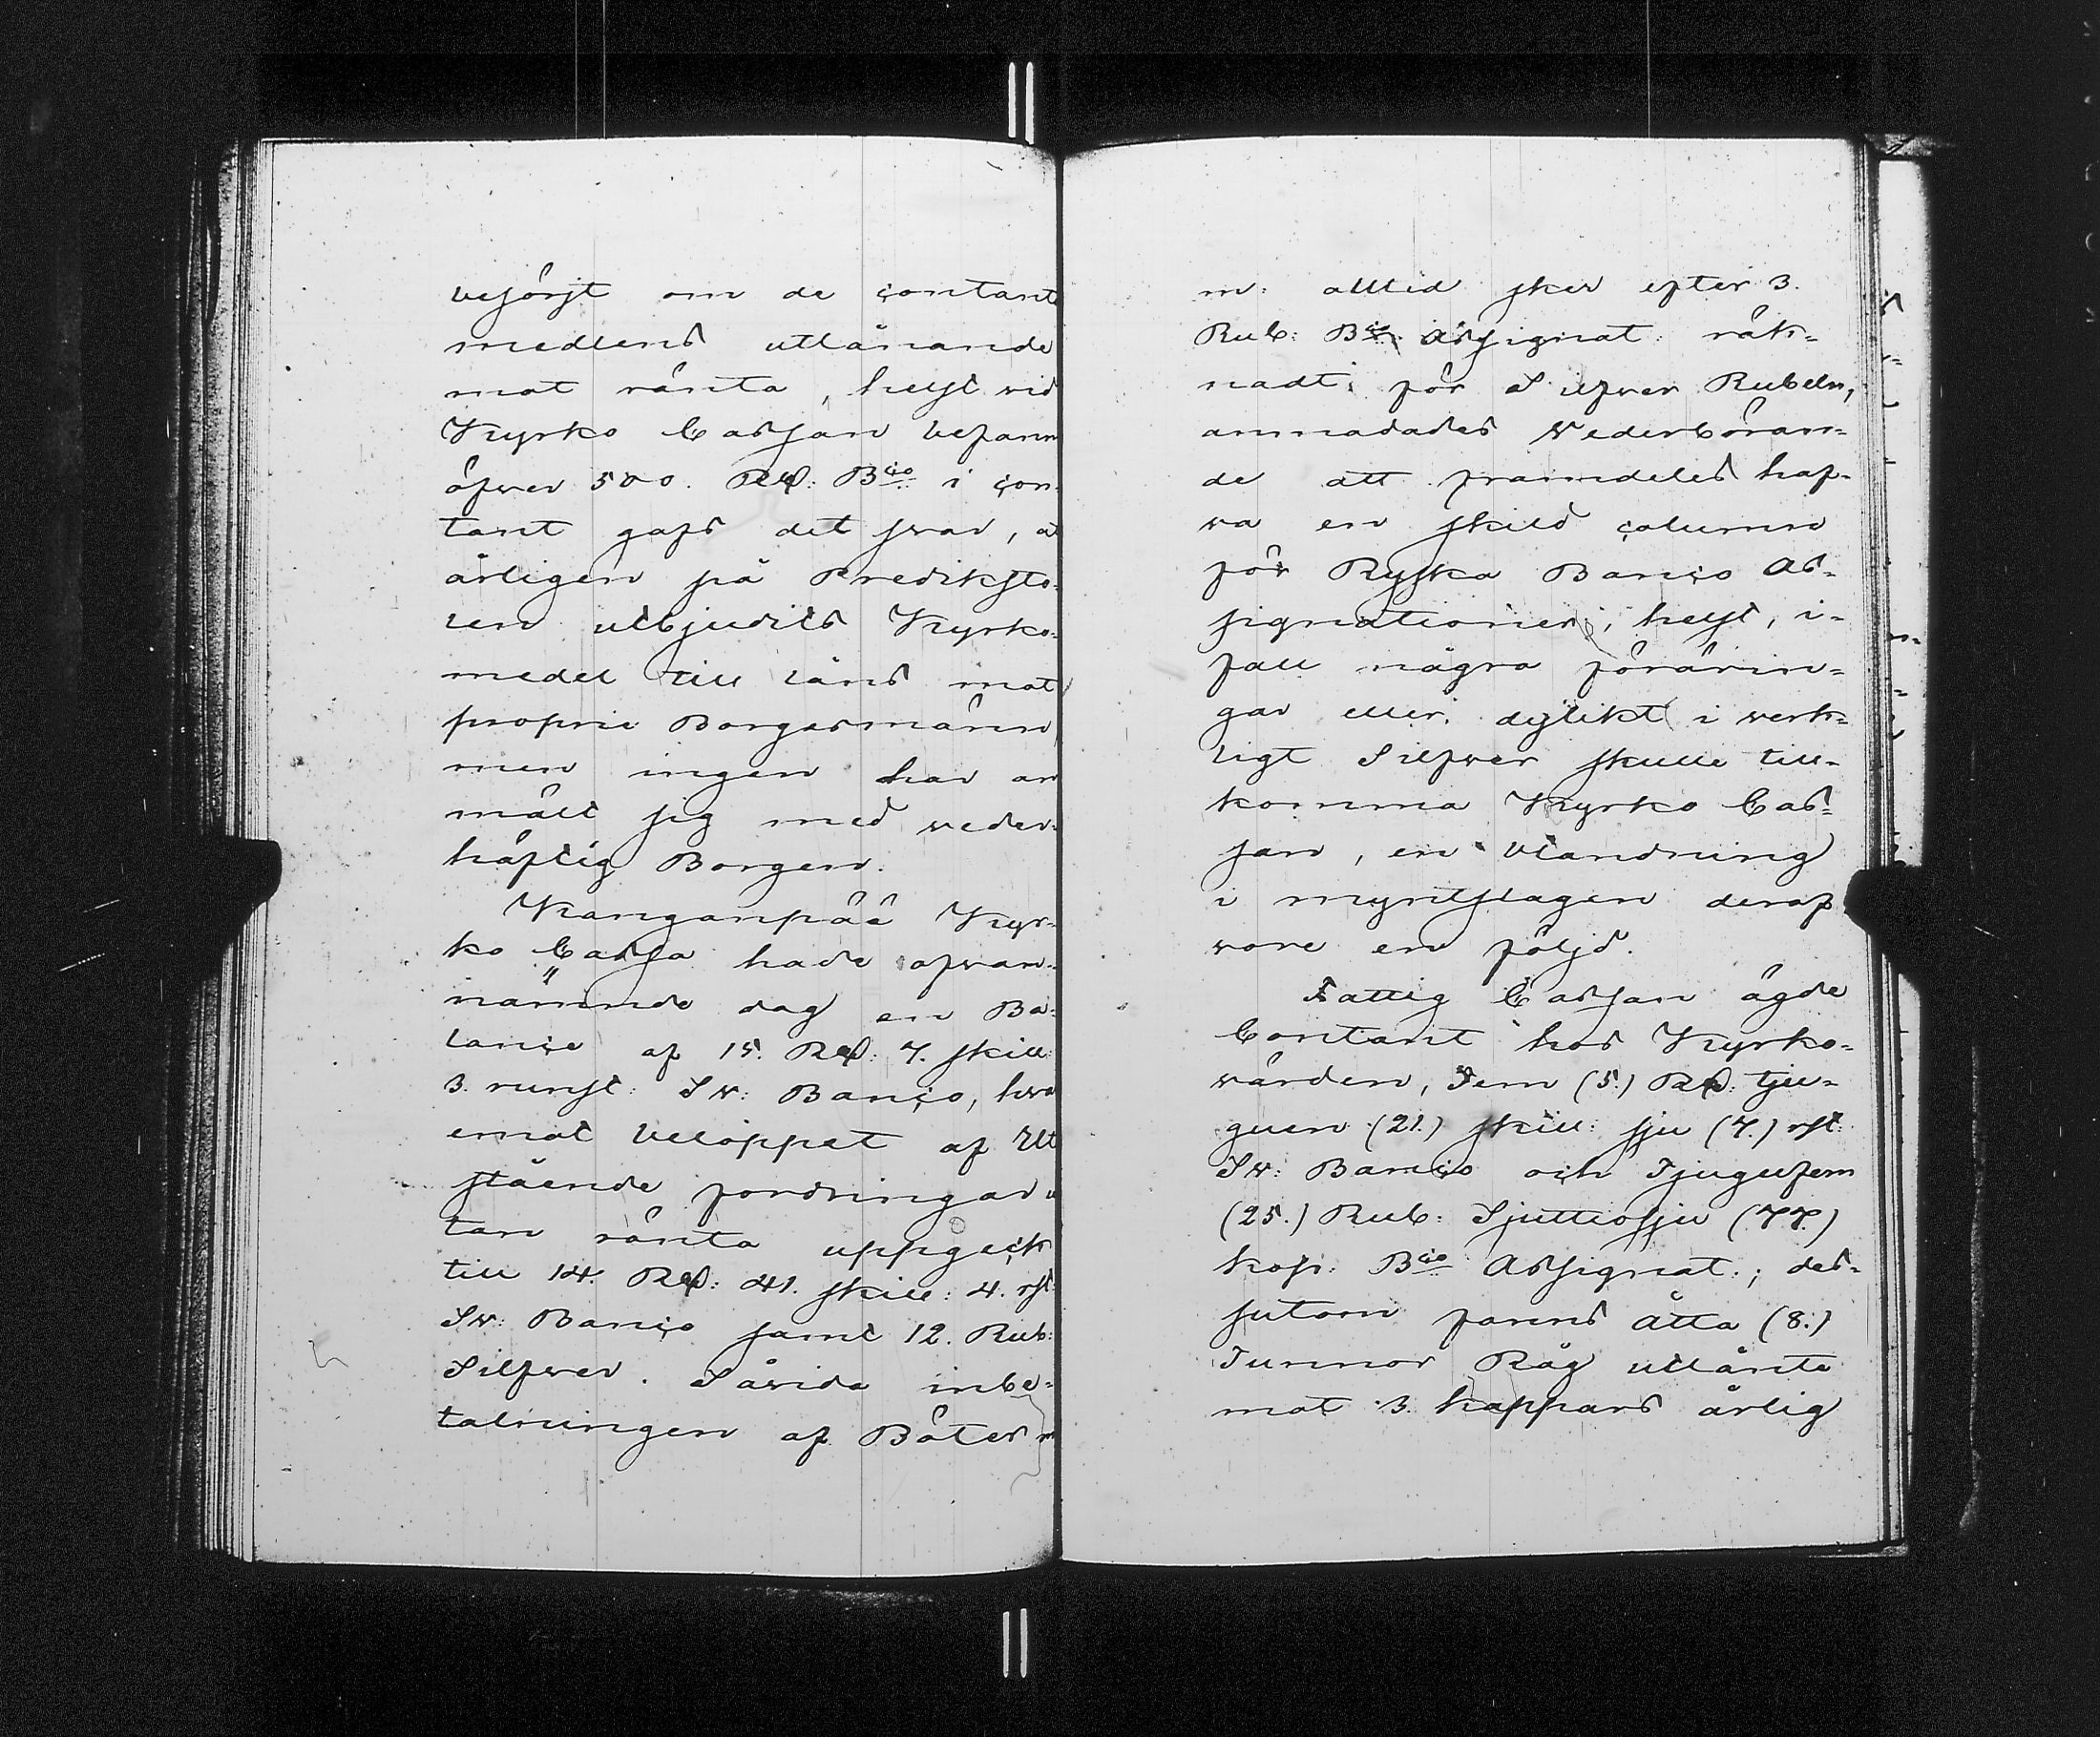 besörjt om de contanta
medlens utlånande
mot ränta, helst vid
Kyrko Cassan befanns
öfver 500. Rd: Bco i con-
tant gafs det svar, at
årligen på Prediksto-
len utbjudits Kyrko-
medel till låns mot
proprie Borgesmänn
men ingen har an
mält sig med veder-
häftig Borgen.
Kanganpää Kyr-
ko Cassa hade ofvan-
nämnde dag en Ba-
lance af 15. Rd: 7. skill:
3. runst: Sv: Banco, hvar
emot beloppet af Ut
stående fordringar u
tan ränta uppgeck
till 14. Rd: 41. skill: 4. rst:
Sv: Banco samt 12. Rub:
Silfver. Såvida inbe-
talningen af Böter m
m: alltid sker efter 3.
Rub: Bco Assignat: räk-
nadt för Silfver Rubeln,
anmadades Vederböran-
de att framdeles haf-
va en skild column
för Ryska Banco As-
signationer; helst, i-
fall några förärin-
gar eller dylikt i verk-
ligt Silfver skulle till-
komma Kyrko Cas-
san, en blandning
i myntslagen deraf
vore en följd.
Fattig Cassan ägde
Contant hos Kyrko-
värden, Fem (5.) Rd: tju-
guen (21.) skill: sju (7.) rst:
Sv: Banco och Tjugufem
(25.) Rub: Sjuttiosju (77.)
kop: Bco Assignat.; des-
sutom fanns åtta (8.)
Tunnor Råg utlånte
mot 3. kappars årlig